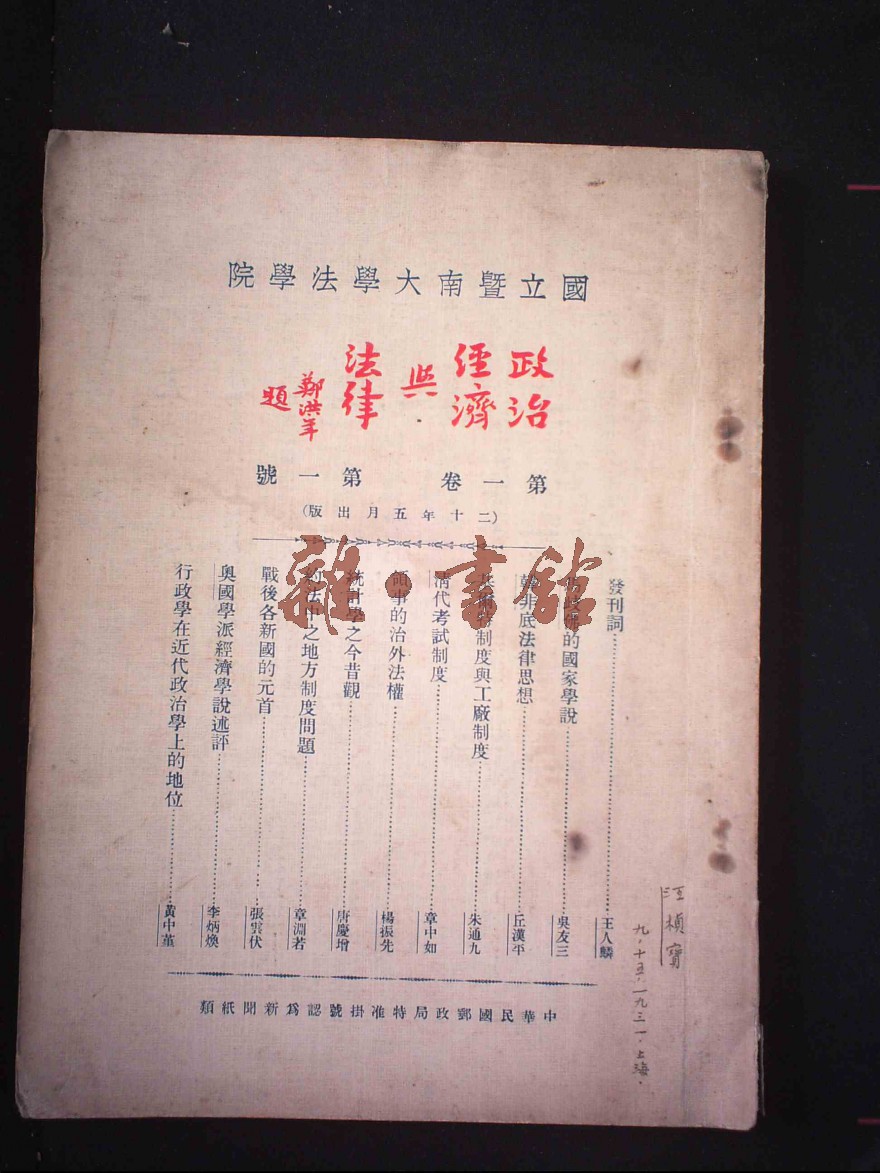 國立暨南大學法學院
政治
經濟
與
法律
鄭洪年
題
第一卷 第一號
(二十年五月出版)
發刊詞 王人麟
的國家學說 吳友三
韓非底法律思想 丘漢平
制度與工廠制度 朱通九
清代考試制度 章中如
領事的治外法權 楊振先
統計學之今昔觀 唐慶增
約法中之地方制度問題 章淵若
戰後各新國的元首 張雲伏
奧國學派經濟學說述評 李炳煥
行政學在近代政治學上的地位 黃中堇
中華民國郵政局特准掛號認為新聞紙類
汪楨寶
九·十五·一九三一·上海·
雜·書館